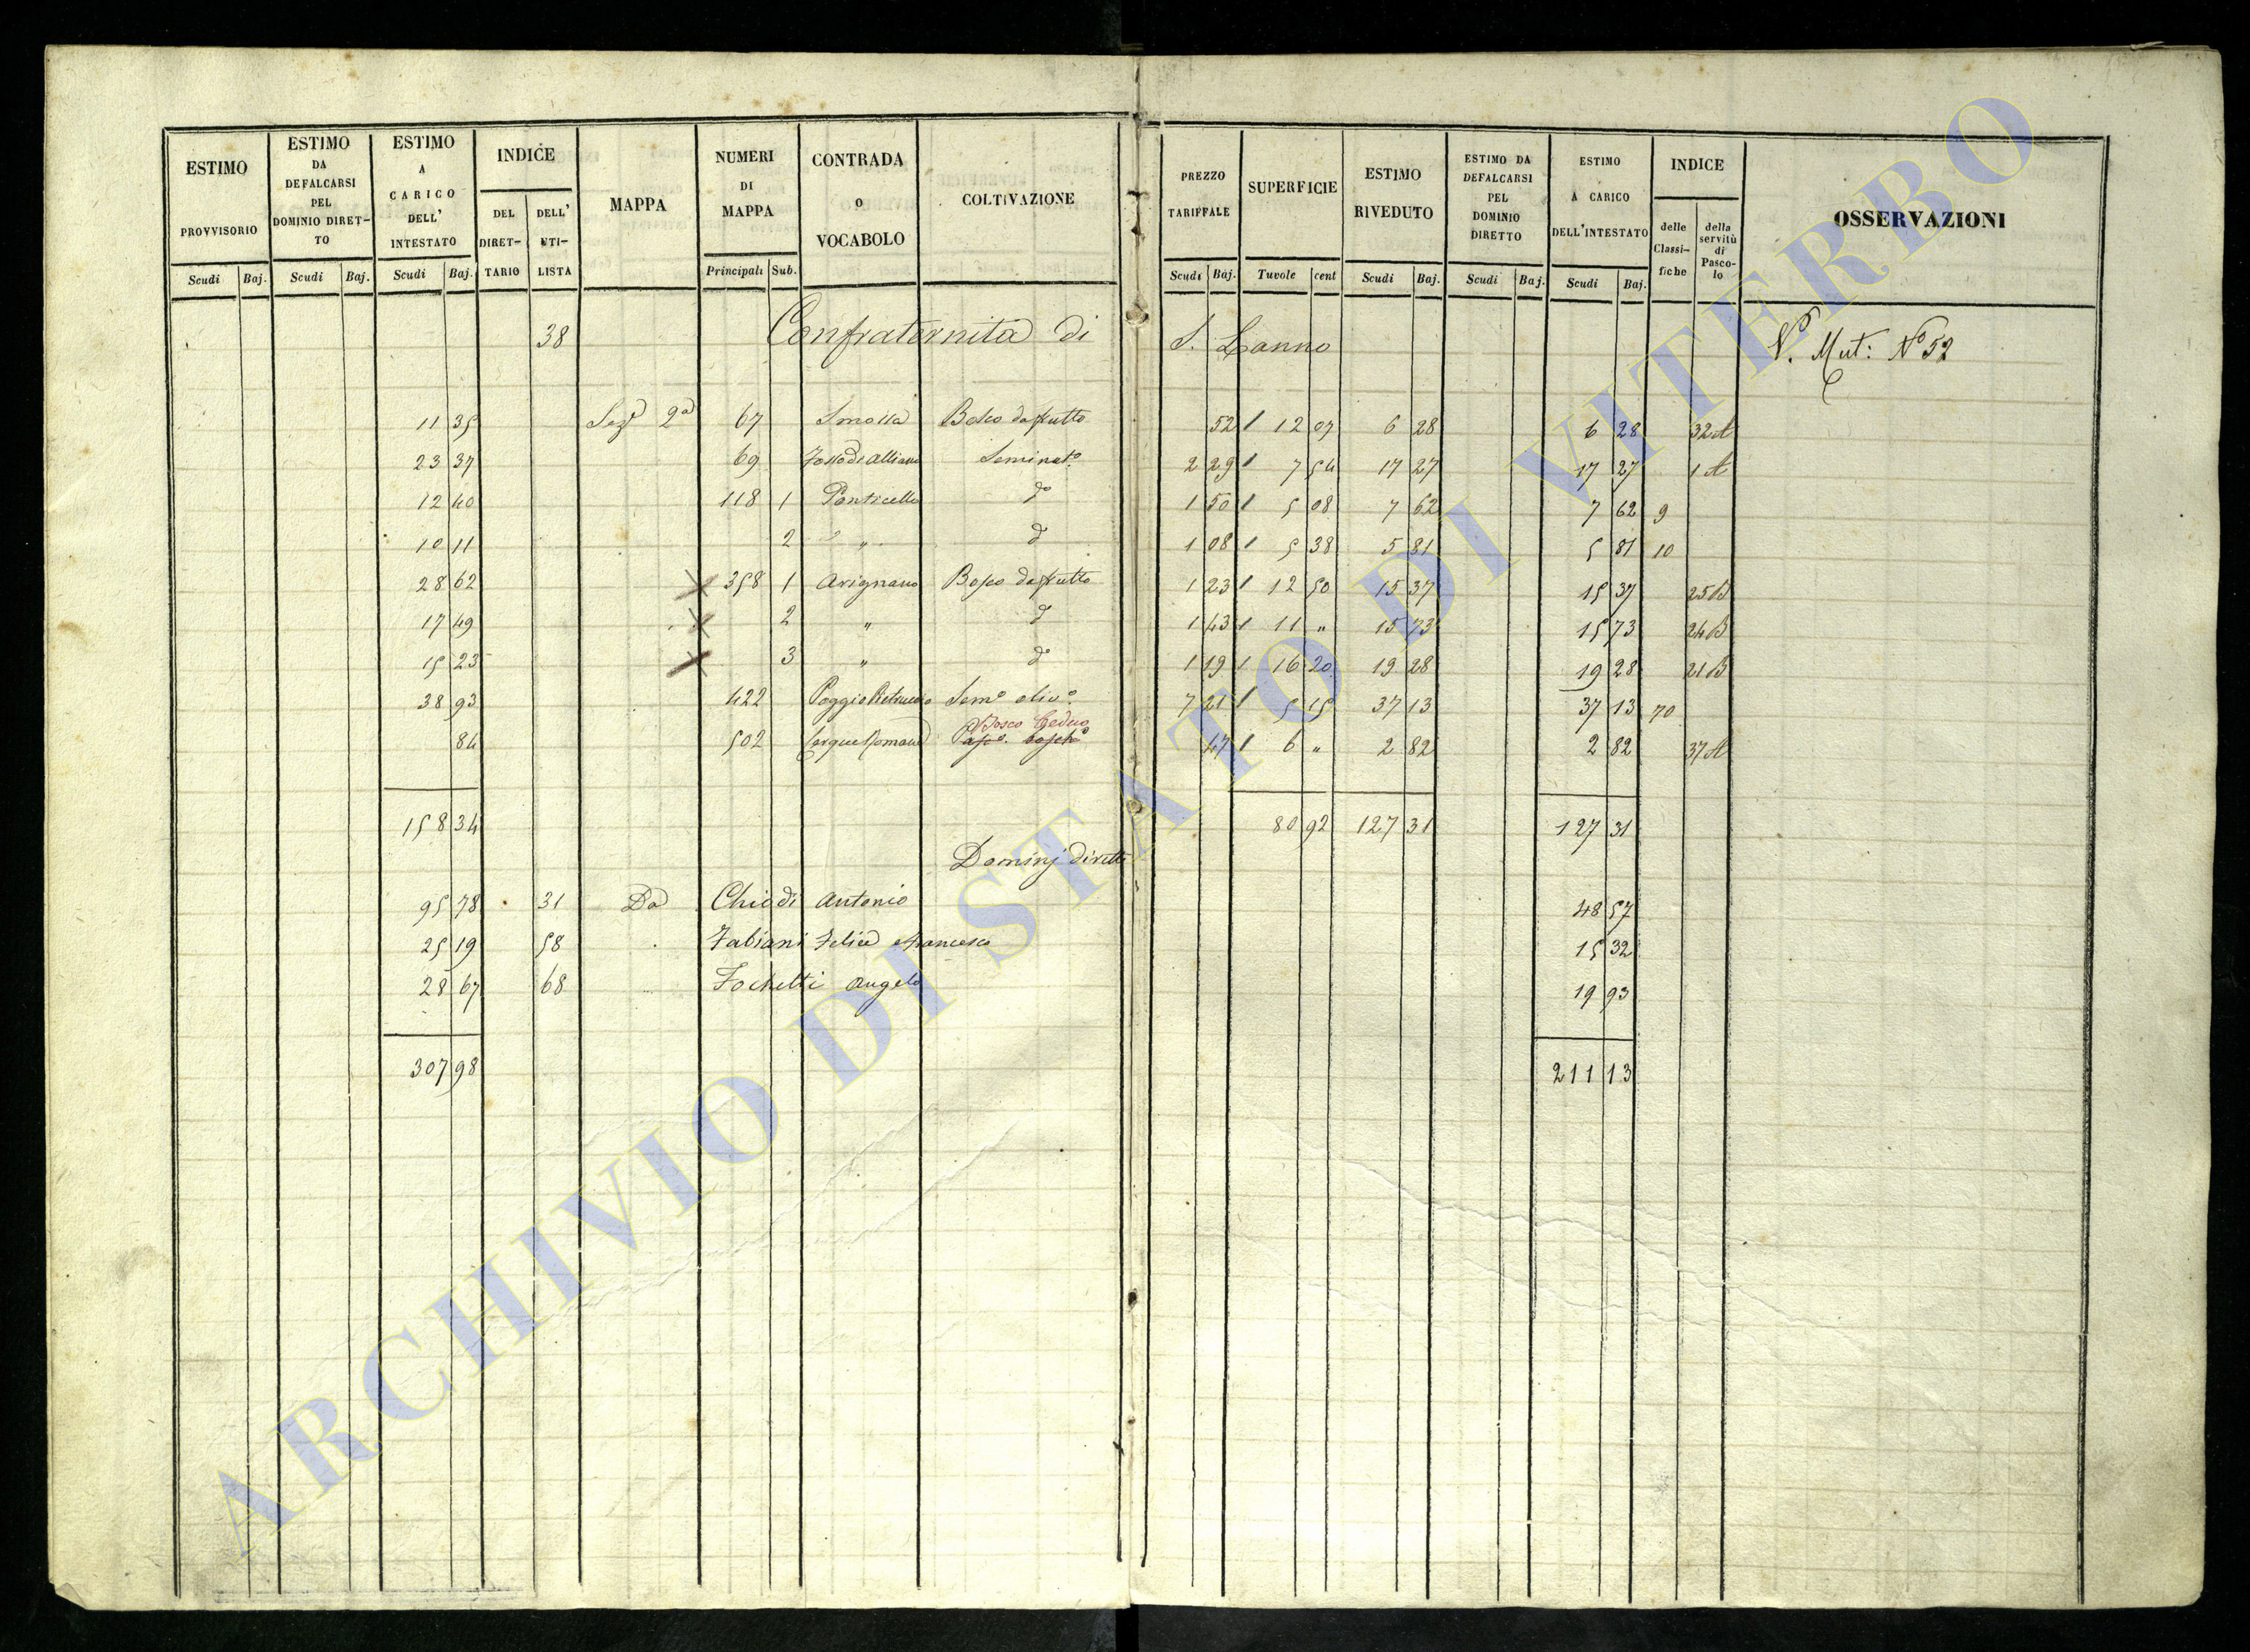 ESTIMO PROVVISORIO Scudi Baj.
ESTIMO DA DEFALCARSI PEL DOMINIO DIRET-TO Scudi Baj.
ESTIMO A CARICO DELL' INTESTATO Scudi Baj.
INDICE DEL DIRET-TARIO DELL' UTI-LISTA
MAPPA
NUMERI DI MAPPA Principali Sub.
CONTRADA o VOCABOLO
COLTIVAZIONE
PREZZO TARIFFALE Scudi Baj.
SUPERFICIE Tavole cent
ESTIMO RIVEDUTO Scudi Baj.
ESTIMO DA DEFALCARSI PEL DOMINIO DIRETTO Scudi Baj.
ESTIMO A CARICO DELL'INTESTATO Scudi Baj.
INDICE delle Classi-fiche della servitù di Pasco-lo
OSSERVAZIONI
38 Confraternita di S. Lanno V. Mut: N° 52
11 35 Sez. 2a 67 Smossa Bosco da frutto 52 1 12 07 6 28 6 28 32 A
23 37 69 Fosso di Alliano Seminat° 2 29 1 7 54 17 27 17 27 1 A
12 40 118 1 Ponticello d° 1 50 1 5 08 7 62 7 62 9
10 11 2 " d° 1 08 1 5 38 5 81 5 81 10
28 62 358 1 Arignano Bosco da frutto 1 23 1 12 50 15 37 15 37 25 B
17 49 2 " d° 1 43 1 11 " 15 73 15 73 24 B
15 23 3 " d° 1 19 1 16 20 19 28 19 28 21 B
38 93 422 Poggio Pietruccio Sem° oliv° 7 21 1 5 15 37 13 37 13 70
Bosco Ceduo
84 502 Pasc°. bosch° 47 1 6 " 2 82 2 82 37 A
158 34 80 92 127 31 127 31
Dominj diretti
95 78 31 Da Chiodi Antonio 48 57
25 19 58 Fabiani Felice e Francesco 15 32
28 67 68 Fochetti Angelo 19 93
307 98 211 13
ARCHIVIO DI STATO DI VITERBO